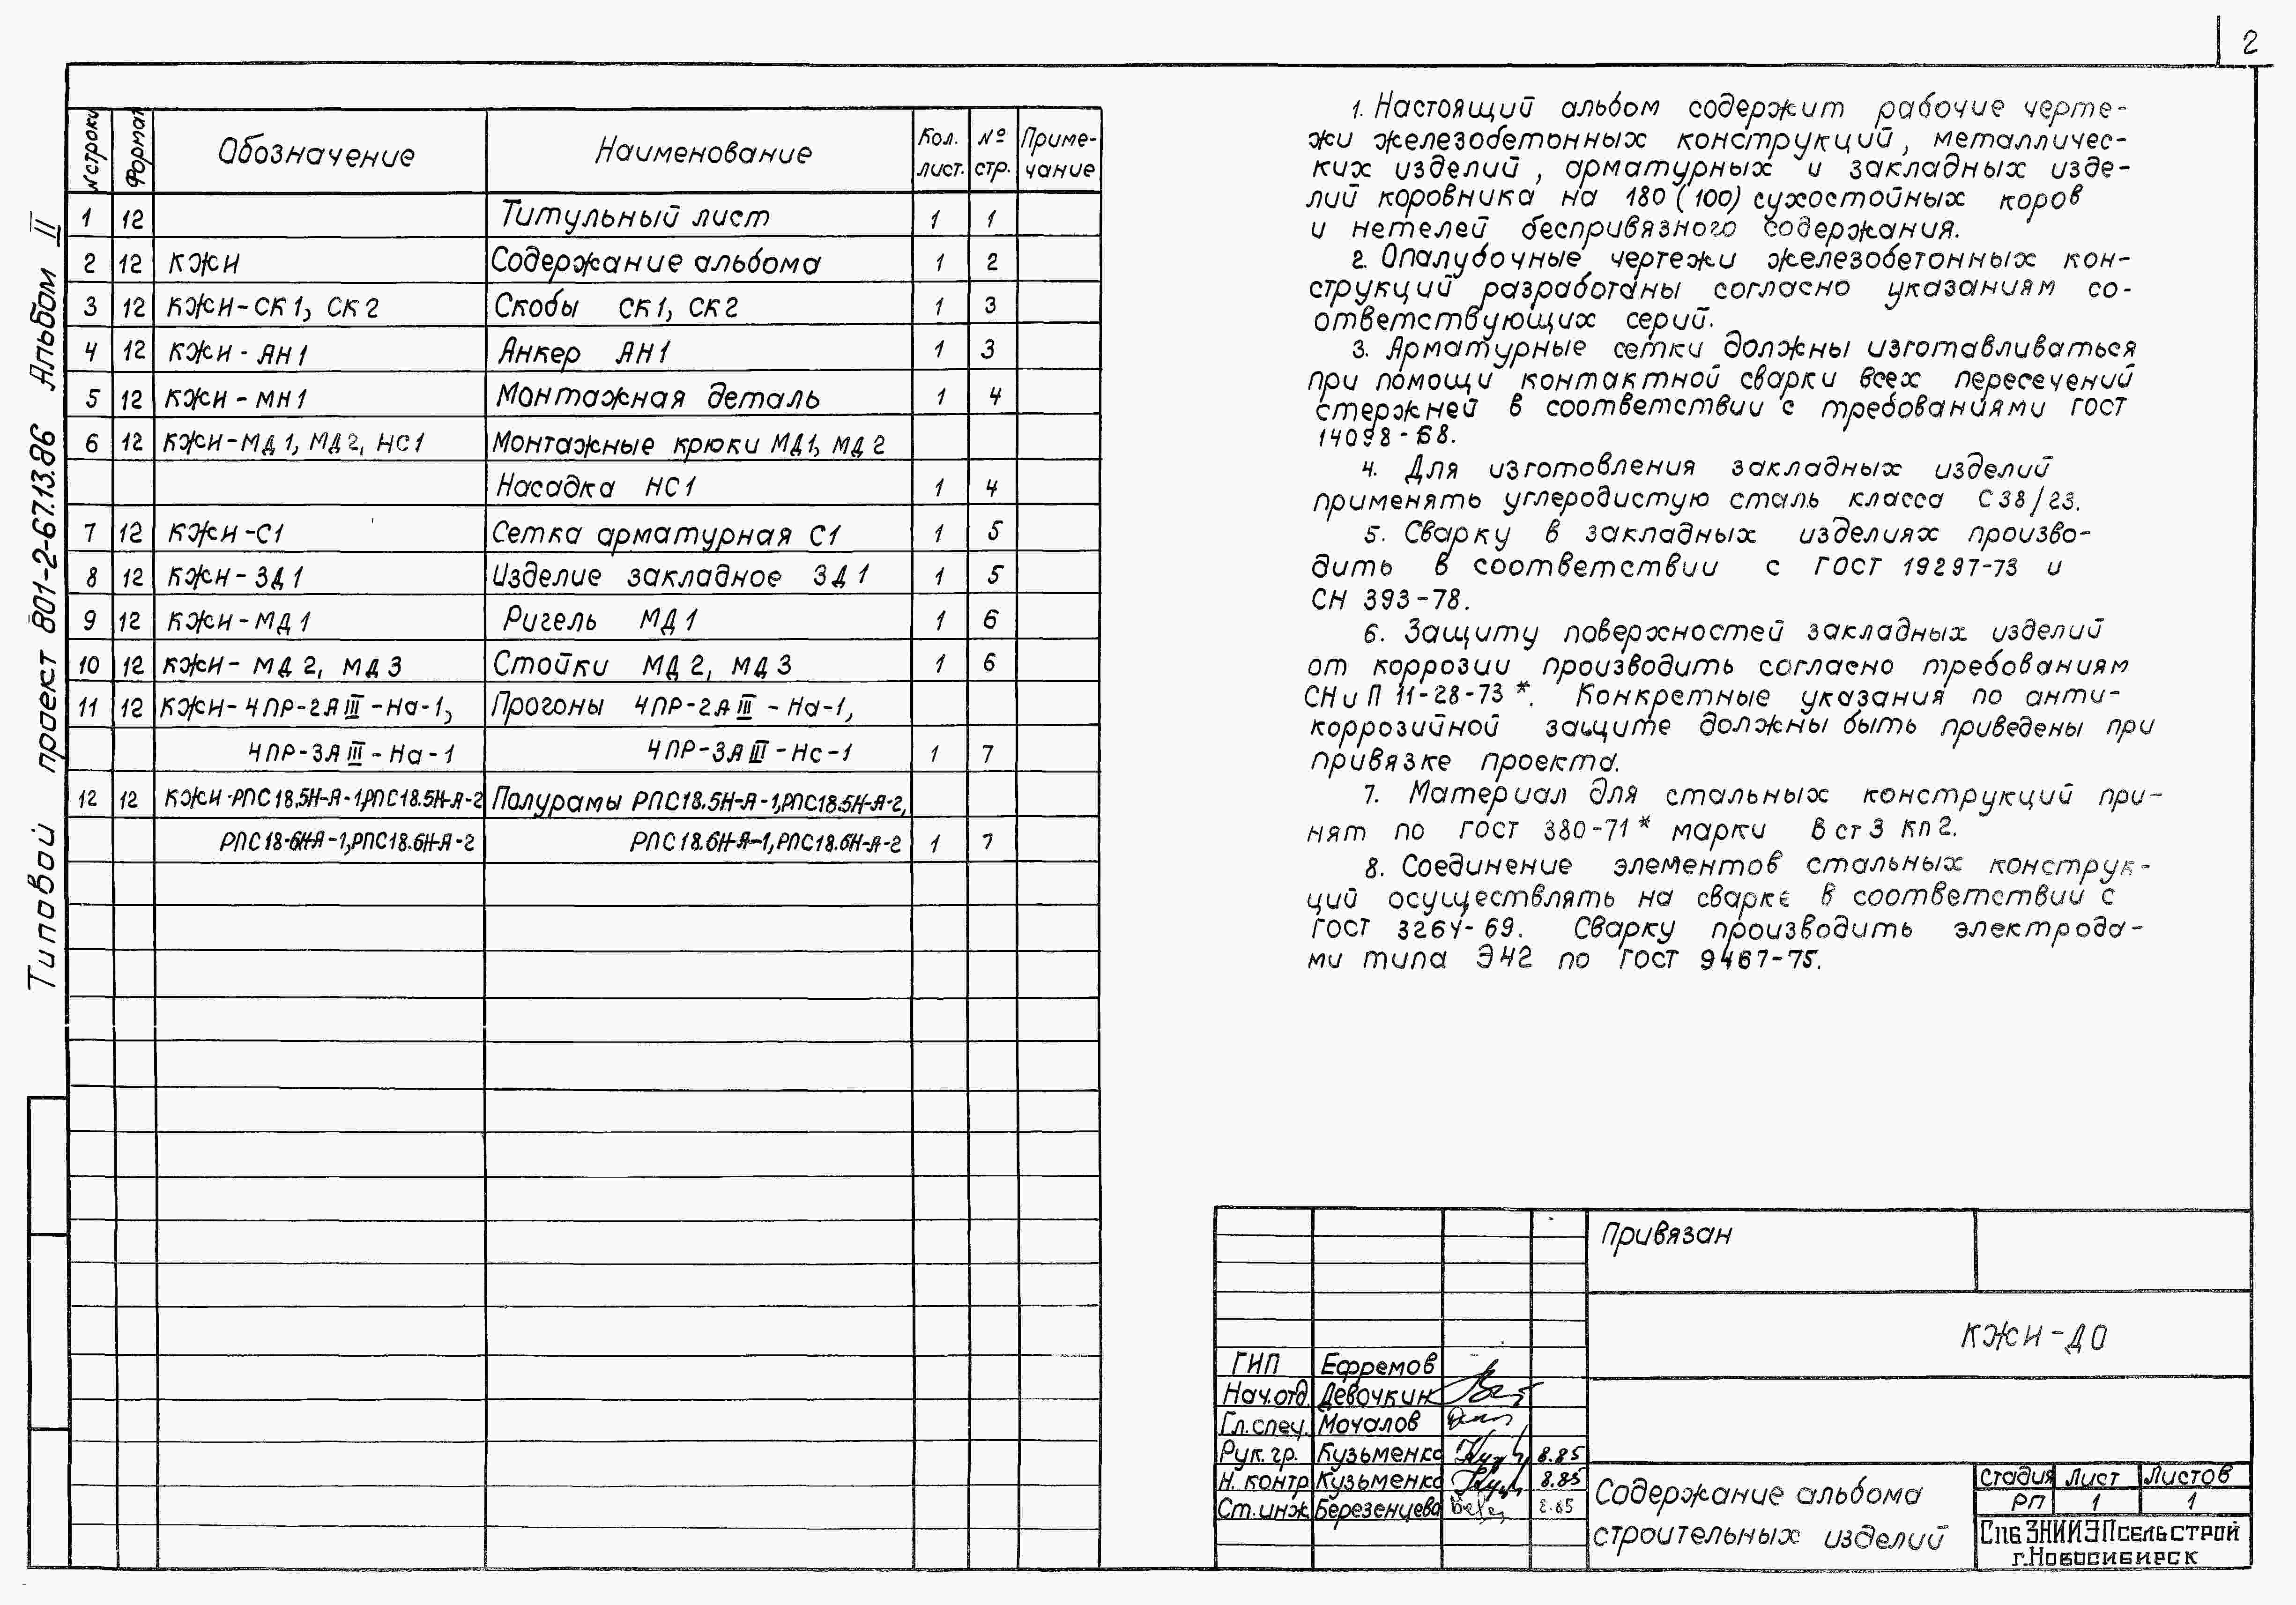 2
Типовой проект 801-2-67.13.86 Альбом II
N строки Формат Обозначение Наименование Кол. лист. № стр. Примечание
1 12 Титульный лист 1 1
2 12 КЖИ Содержание альбома 1 2
3 12 КЖИ-СК1, СК2 Скобы СК1, СК2 1 3
4 12 КЖИ-АН1 Анкер АН1 1 3
5 12 КЖИ-МН1 Монтажная деталь 1 4
6 12 КЖИ-МД1, МД2, НС1 Монтажные крюки МД1, МД2
Насадка НС1 1 4
7 12 КЖИ-С1 Сетка арматурная С1 1 5
8 12 КЖИ-ЗД1 Изделие закладное ЗД1 1 5
9 12 КЖИ-МД1 Ригель МД1 1 6
10 12 КЖИ-МД2, МД3 Стойки МД2, МД3 1 6
11 12 КЖИ-4ПР-2АIII-На-1, Прогоны 4ПР-2АIII-На-1,
4ПР-3АIII-На-1 4ПР-3АIII-Нс-1 1 7
12 12 КЖИ-РПС18.5Н-А-1,РПС18.5Н-А-2 Полурамы РПС18.5Н-А-1,РПС18.5Н-А-2,
РПС18-6Н-А-1,РПС18.6Н-А-2 РПС18.6Н-А-1,РПС18.6Н-А-2 1 7
1. Настоящий альбом содержит рабочие черте-
жи железобетонных конструкций, металличес-
ких изделий, арматурных и закладных изде-
лий коровника на 180 (100) сухостойных коров
и нетелей беспривязного содержания.
2. Опалубочные чертежи железобетонных кон-
струкций разработаны согласно указаниям со-
ответствующих серий.
3. Арматурные сетки должны изготавливаться
при помощи контактной сварки всех пересечений
стержней в соответствии с требованиями ГОСТ
14098-68.
4. Для изготовления закладных изделий
применять углеродистую сталь класса С38/23.
5. Сварку в закладных изделиях произво-
дить в соответствии с ГОСТ 19297-73 и
СН 393-78.
6. Защиту поверхностей закладных изделий
от коррозии производить согласно требованиям
СНиП 11-28-73*. Конкретные указания по анти-
коррозийной защите должны быть приведены при
привязке проекта.
7. Материал для стальных конструкций при-
нят по ГОСТ 380-71* марки Вст3 кп2.
8. Соединение элементов стальных конструк-
ций осуществлять на сварке в соответствии с
ГОСТ 3264-69. Сварку производить электрода-
ми типа Э42 по ГОСТ 9467-75.
Привязан
КЖИ-ДО
ГИП Ефремов
Нач.отд. Девочкин
Гл.спец. Мочалов
Рук.гр. Кузьменко 8.85
Н.контр Кузьменко 8.85
Ст.инж Березенцева 8.85
Содержание альбома
строительных изделий
Стадия Лист Листов
РП 1 1
СибЗНИИЭПсельстрой
г.Новосибирск